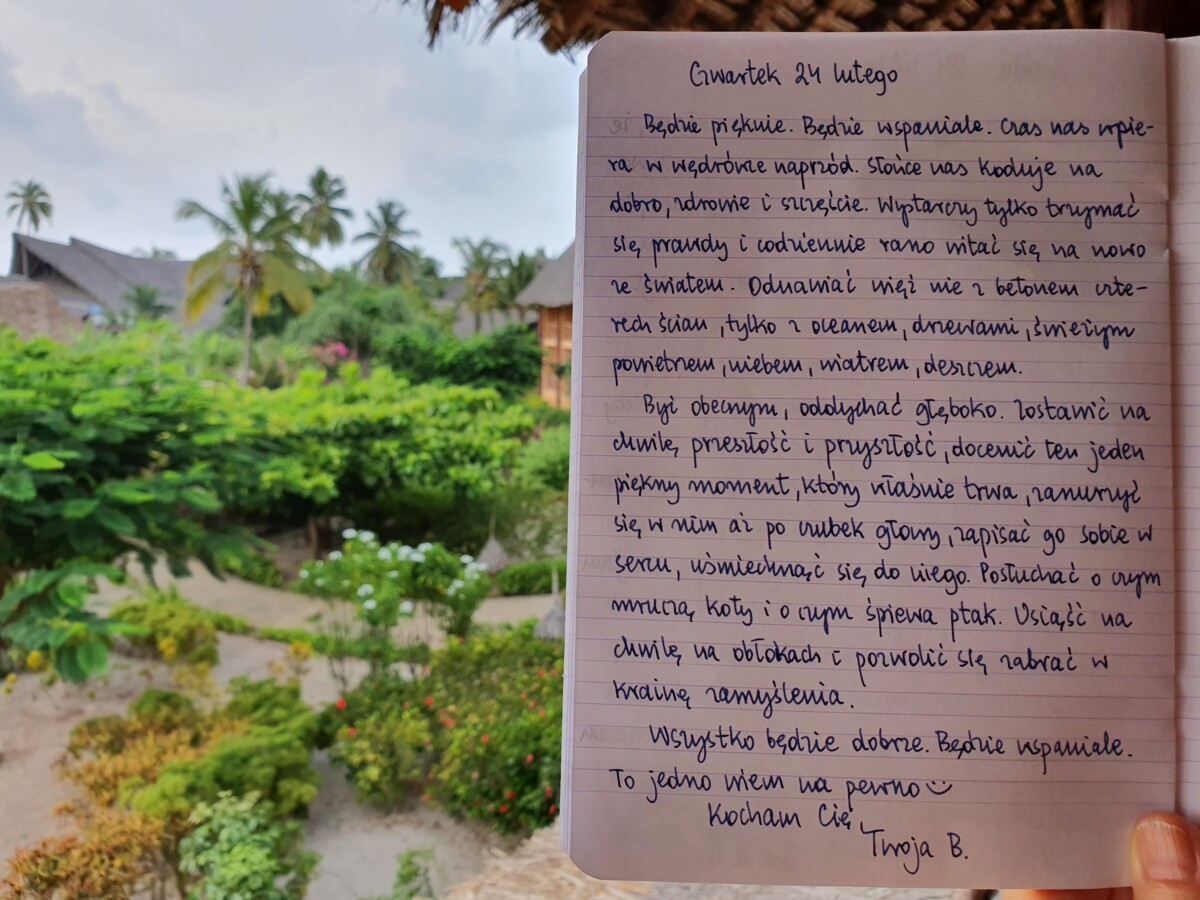 Czwartek 24 lutego
Będzie pięknie. Będzie wspaniale. Czas nas wspie-
ra w wędrówce naprzód. Słońce nas koduje na
dobro, zdrowie i szczęście. Wystarczy tylko trzymać
się prawdy i codziennie rano witać się na nowo
ze światem. Odnawiać więź nie z betonem czte-
rech ścian, tylko z oceanem, drzewami, świeżym
powietrzem, niebem, wiatrem, deszczem.
Być obecnym, oddychać głęboko. Zostawić na
chwilę przeszłość i przyszłość, docenić ten jeden
piękny moment, który właśnie trwa, zanurzyć
się w nim aż po czubek głowy, zapisać go sobie w
sercu, uśmiechnąć się do niego. Posłuchać o czym
mruczą koty i o czym śpiewa ptak. Usiąść na
chwilę na obłokach i pozwolić się zabrać w
krainę zamyślenia.
Wszystko będzie dobrze. Będzie wspaniale.
To jedno wiem na pewno☺
Kocham Cię,
Twoja B.